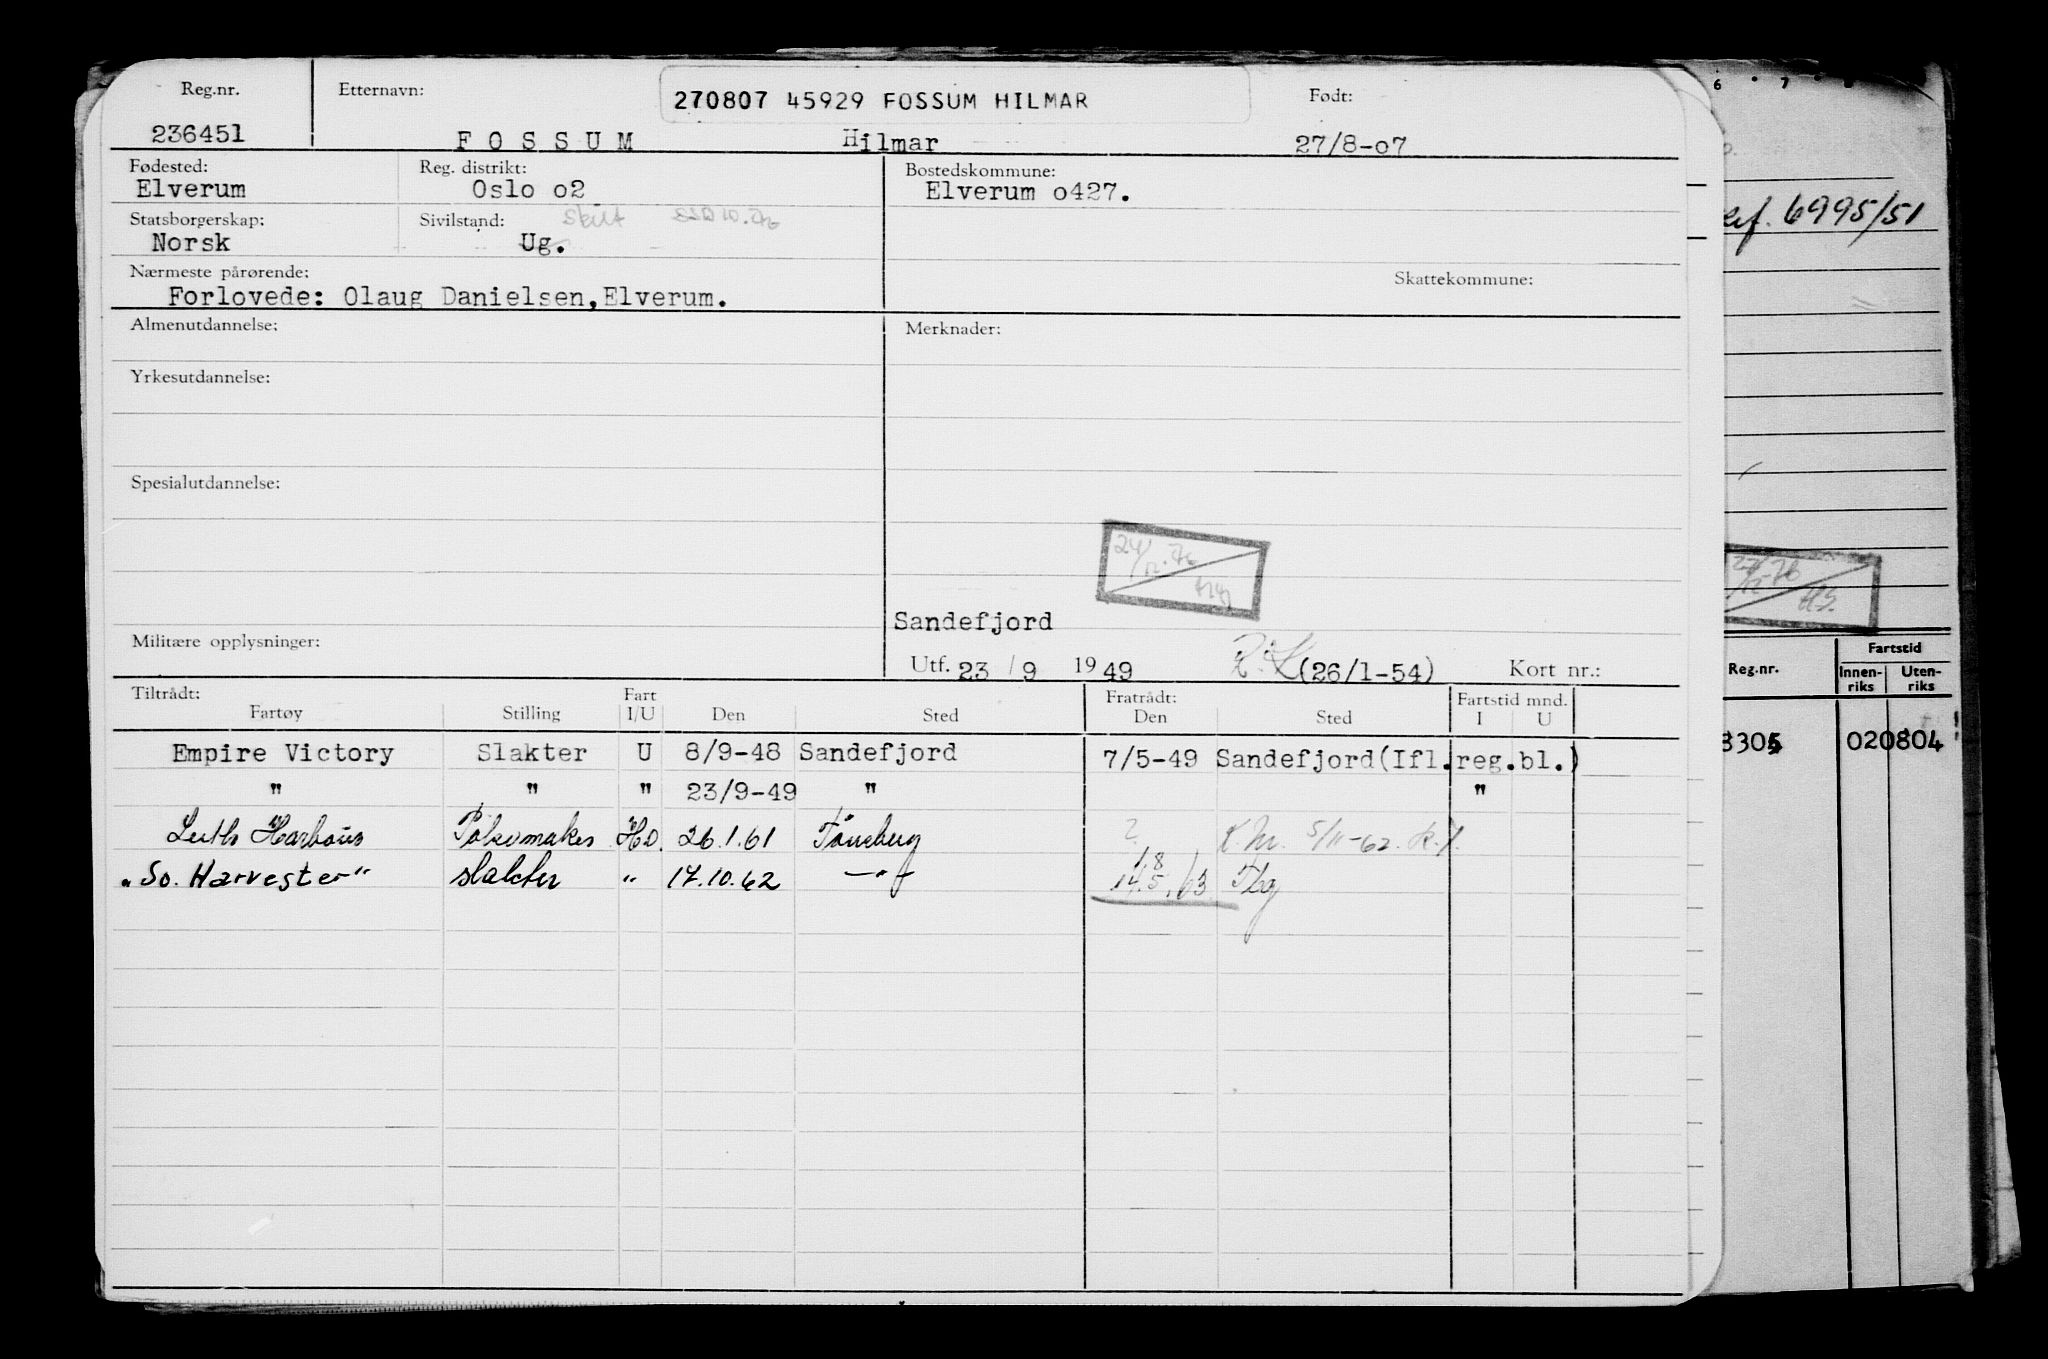 Reg.nr. Etternavn: 270807 45929 FOSSUM HILMAR Født:
236451 F O S S U M Hilmar 27/8-07
Fødested: Reg. distrikt: Bostedskommune:
Elverum Oslo o2 Elverum o427.
Statsborgerskap: Sivilstand: skilt
Norsk Ug.
Nærmeste pårørende: Skattekommune:
Forlovede: Olaug Danielsen,Elverum.
Almenutdannelse: Merknader:
Yrkesutdannelse:
Spesialutdannelse:
24/12.76
Sandefjord
Militære opplysninger:
Utf. 23 / 9 19 49 (26/1-54) Kort nr.:
Tiltrådt: Fratrådt: Fartstid mnd.
Fartøy Stilling Fart I/U Den Sted Den Sted I U
Empire Victory Slakter U 8/9-48 Sandefjord 7/5-49 Sandefjord(Ifl.reg.bl.)
" " " 23/9-49 " "
Leith Harbour 26.1.61 Tönsberg ? 5/11-62
"So. Harvester" slakter " 17.10.62 —"— 14.5.63 Tbg
6 7
6995/51
Reg.nr. Fartstid
Innen-riks Uten-riks
020804